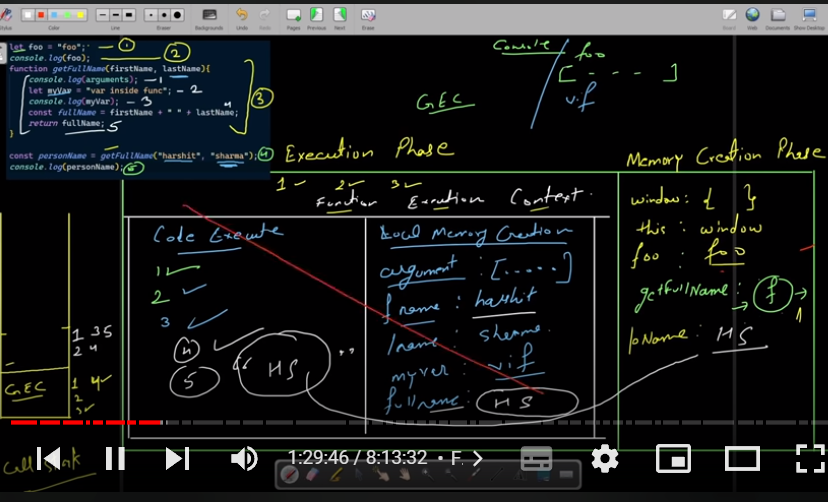 Color
Line
Eraser
Backgrounds
Undo
Redo
Pages
Previous
Next
Erase
Board
Web
Documents
Show Desktop
let foo = "foo"; ①
console.log(foo); ②
function getFullName(firstName, lastName){
console.log(arguments); — 1
let myVar = "var inside func"; — 2
console.log(myVar); — 3
const fullName = firstName + " " + lastName; 4
return fullName; 5
}
③
const personName = getFullName("harshit", "sharma"); ④
console.log(personName); ⑤
Console
foo
[ - - - - ]
v.if
GEC
Execution Phase
Memory Creation Phase
1 ✓ 2 ✓ 3 ✓
Function Execution Context.
Code Execute
1 ✓
2 ✓
3 ✓
④ ✓
⑤
“ HS ”
Local Memory Creation
argument : [.....]
fname : harshit
lname : sharma.
myvar : v.if
fullname : HS
window : { }
this : window
foo : foo
getFullName : → f → 1
pName : HS
1 3 5
2 4
GEC
1 4 ✓
2
3 ✓
Call Stack
1:29:46 / 8:13:32 • F.